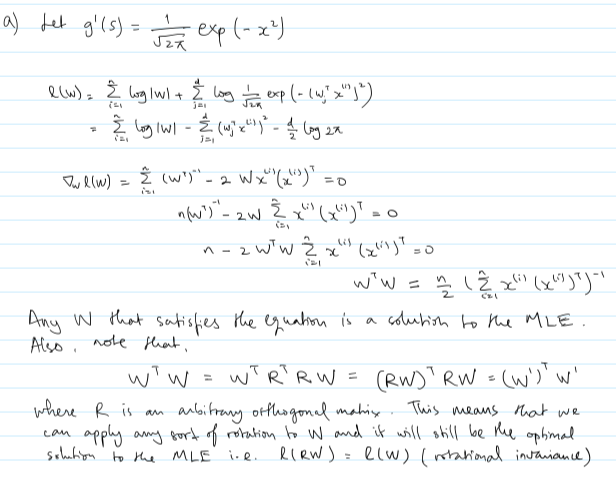 a) Let g'(s) = 1/√2π exp(-x²)
l(W) = Σ_{i=1}^{n} log|W| + Σ_{j=1}^{d} log 1/√2π exp(-(w_j^T x^(i))²)
= Σ_{i=1}^{n} log|W| - Σ_{j=1}^{d} (w_j^T x^(i))² - d/2 log 2π
∇_W l(W) = Σ_{i=1}^{n} (W^T)^-1 - 2 W x^(i) (x^(i))^T = 0
n(W^T)^-1 - 2W Σ_{i=1}^{n} x^(i) (x^(i))^T = 0
n - 2 W^T W Σ_{i=1}^{n} x^(i) (x^(i))^T = 0
W^T W = n/2 (Σ_{i=1}^{n} x^(i) (x^(i))^T)^-1
Any W that satisfies the equation is a solution to the MLE.
Also, note that,
W^T W = W^T R^T R W = (RW)^T RW = (W')^T W'
where R is an arbitrary orthogonal matrix. This means that we
can apply any sort of rotation to W and it will still be the optimal
solution to the MLE i.e. l(RW) = l(W) (rotational invariance)